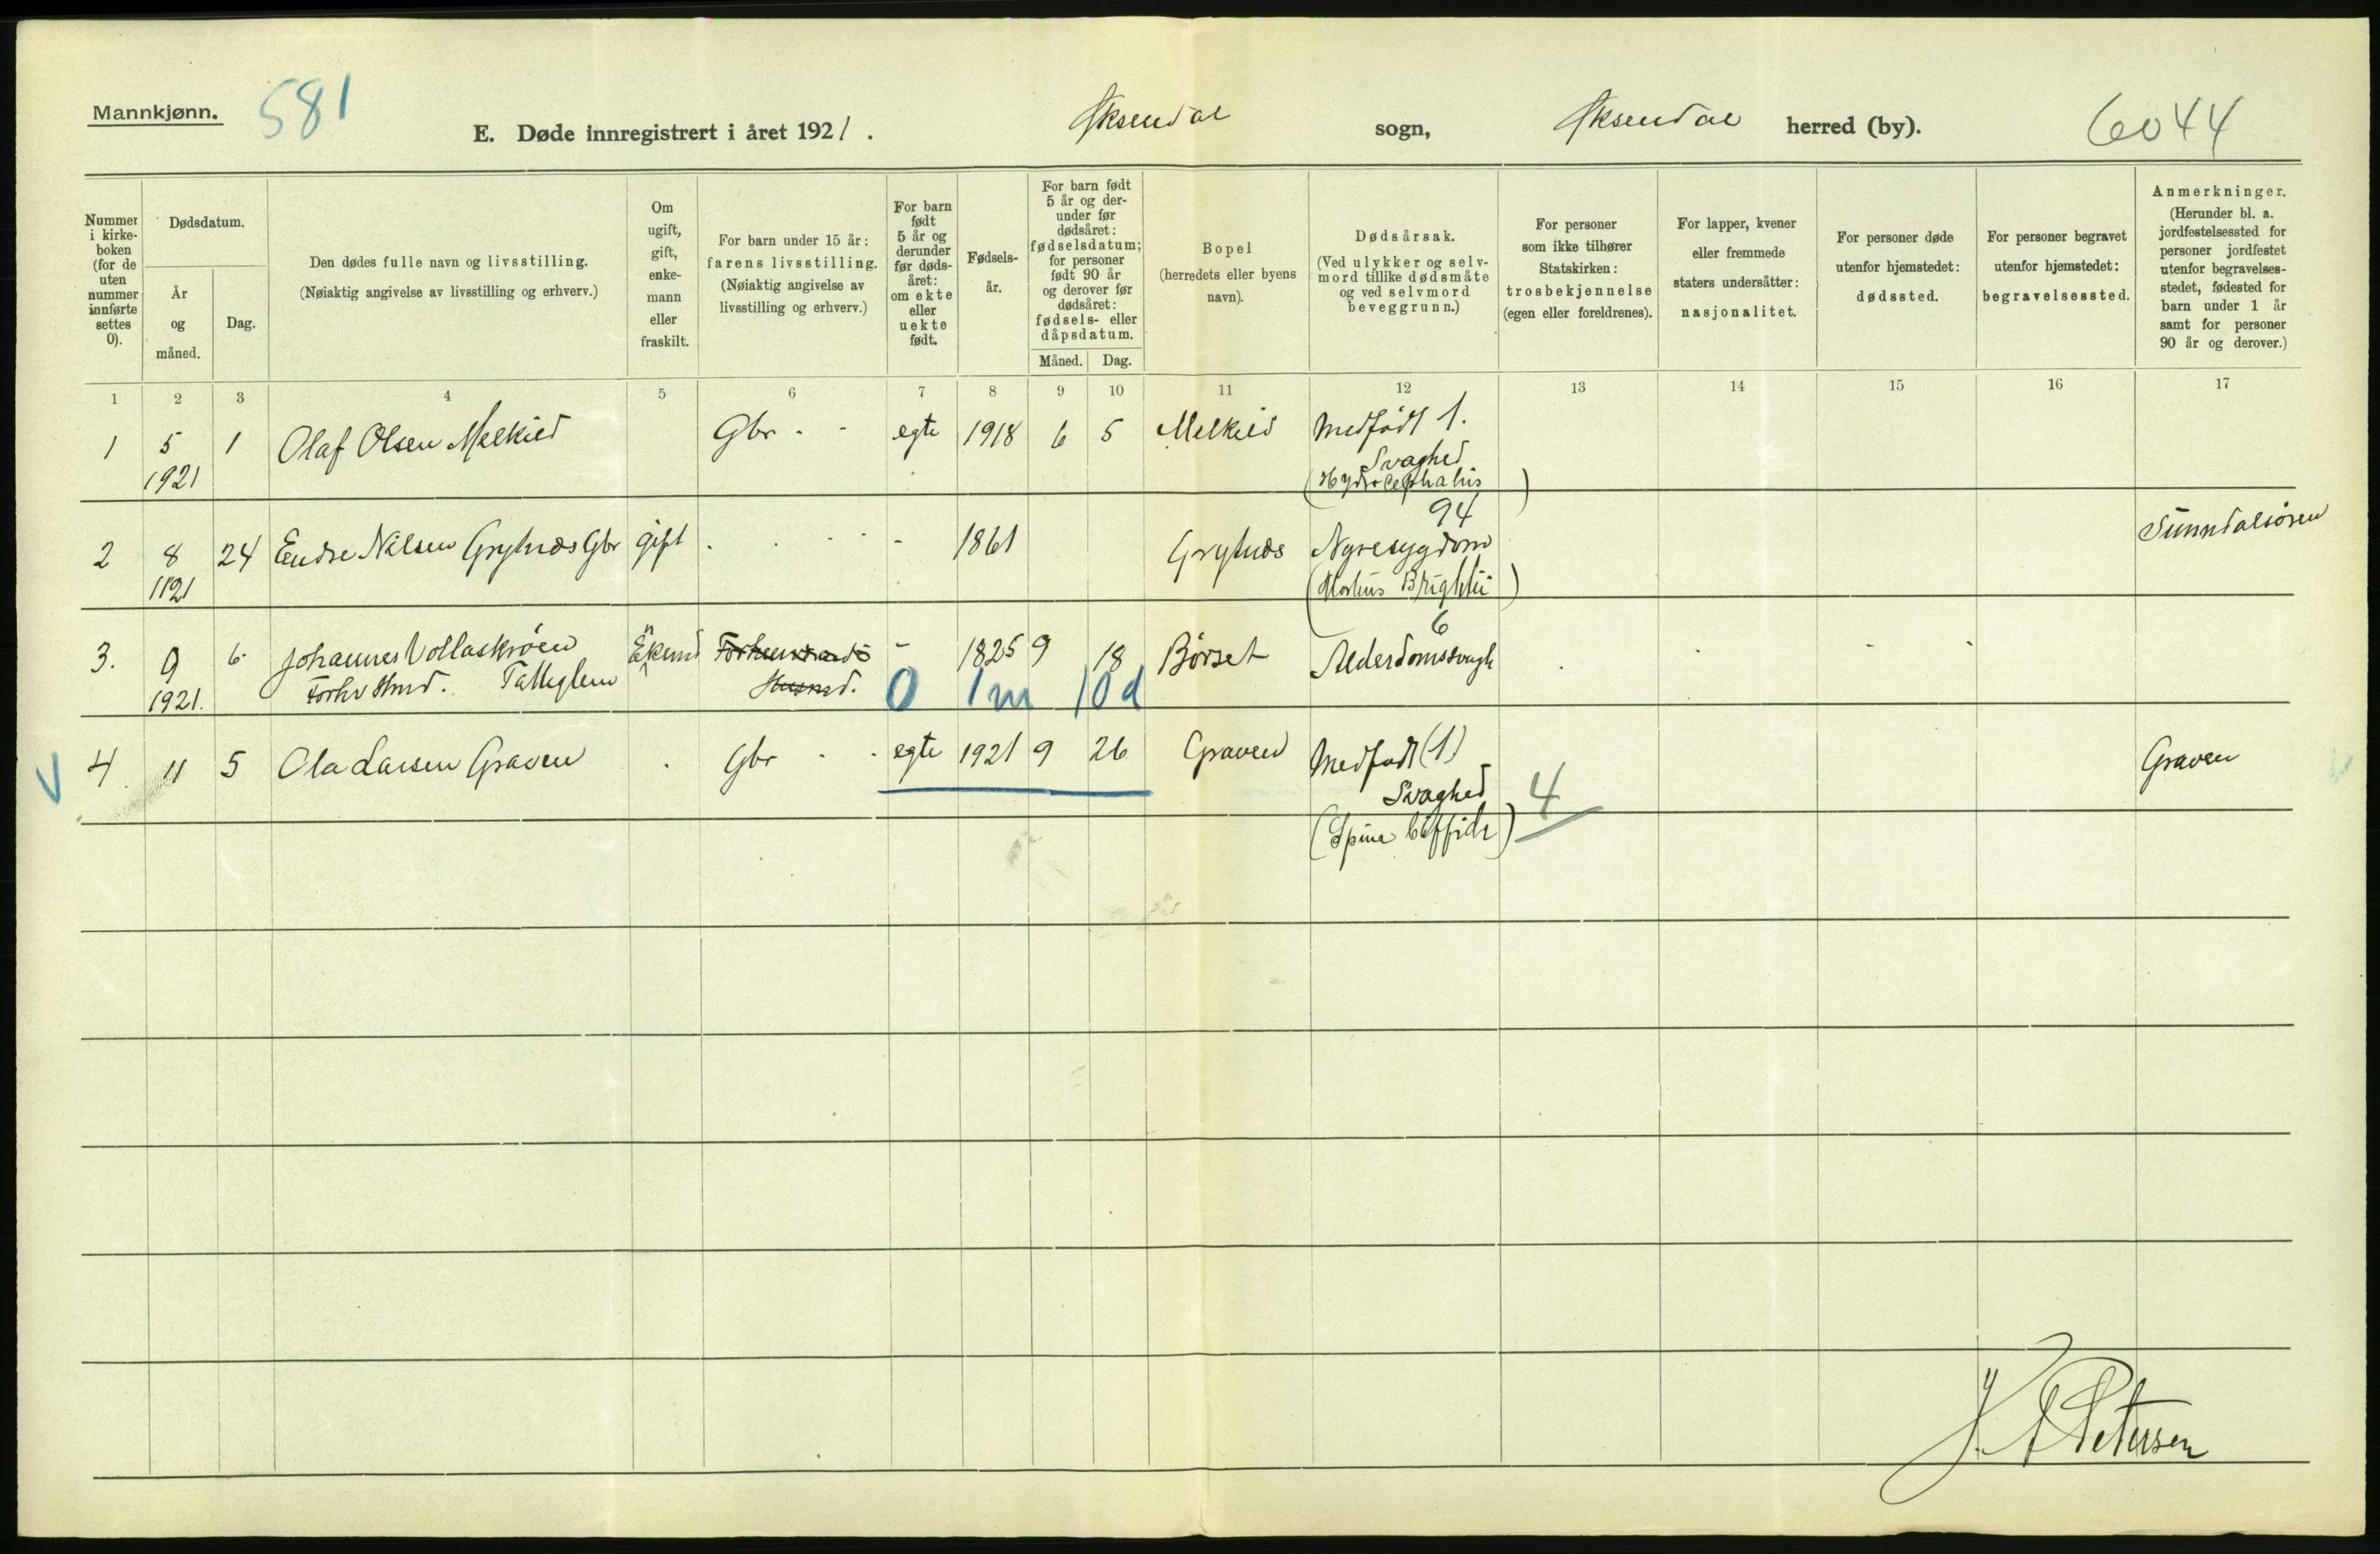 Mannkjønn.
581
E. Døde innregistrert i året 1921.
Øksendal sogn, Øksendal herred (by).
6044
Nummer i kirke-boken (for de uten nummer innførte settes 0).
Dødsdatum.
År og måned.
Dag.
Den dødes fulle navn og livsstilling.
(Nøiaktig angivelse av livsstilling og erhverv.)
Om ugift, gift, enke-mann eller fraskilt.
For barn under 15 år: farens livsstilling.
(Nøiaktig angivelse av livsstilling og erhverv.)
For barn født 5 år og derunder før døds-året: om ekte eller uekte født.
Fødsels-år.
For barn født 5 år og der-under før dødsåret: fødselsdatum; for personer født 90 år og derover før dødsåret: fødsels- eller dåpsdatum.
Måned. Dag.
Bopel
(herredets eller byens navn).
Dødsårsak.
(Ved ulykker og selv-mord tillike dødsmåte og ved selvmord beveggrunn.)
For personer som ikke tilhører Statskirken: trosbekjennelse
(egen eller foreldrenes).
For lapper, kvener eller fremmede staters undersåtter: nasjonalitet.
For personer døde utenfor hjemstedet: dødssted.
For personer begravet utenfor hjemstedet: begravelsessted.
Anmerkninger.
(Herunder bl. a. jordfestelsessted for personer jordfestet utenfor begravelses-stedet, fødested for barn under 1 år samt for personer 90 år og derover.)
1 2 3 4 5 6 7 8 9 10 11 12 13 14 15 16 17
1 5 1 Olaf Olsen Melkild Gbr - - egte 1918 6 5 Melkild Medfødt 1.
1921 Svaghed
(Hydrocephalus)
94
2 8 24 Endre Nilsen Grytnæs Gbr gift 1861 Grytnæs Nyresygdom Sunndalsøren
1121 (Morbus Brightii)
6
3. 9 6 Johannes Vollaskrøen Enkemd - 1825 9 18 Børset Alderdomssvagh
1921. Forhv Husmd.
Husmd. 0 1m 10d
V 4 11 5 Ola Larsen Graven Gbr - - egte 1921 9 26 Graven Medfødt (1) Graven
Svaghed
4
(Spina biffida)
Petersen